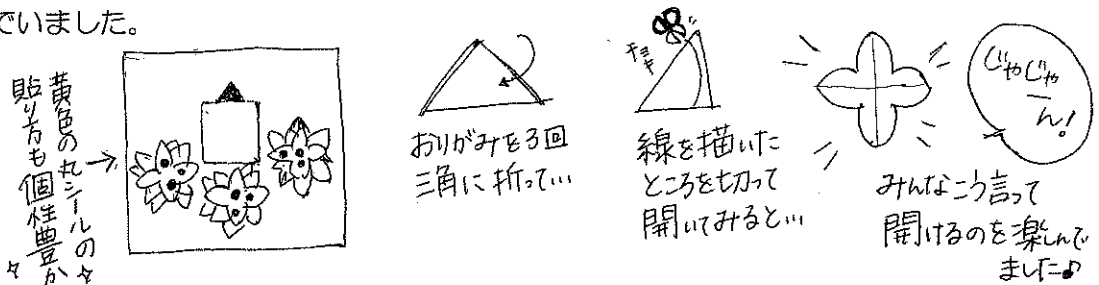 でいました。
黄色の丸シールの
貼り方も個性豊か
おりがみを3回
三角に折って…
チョキ
線を描いた
ところを切って
開いてみると…
じゃじゃ
ーん!
みんなこう言って
開けるのを楽しんで
ました♪